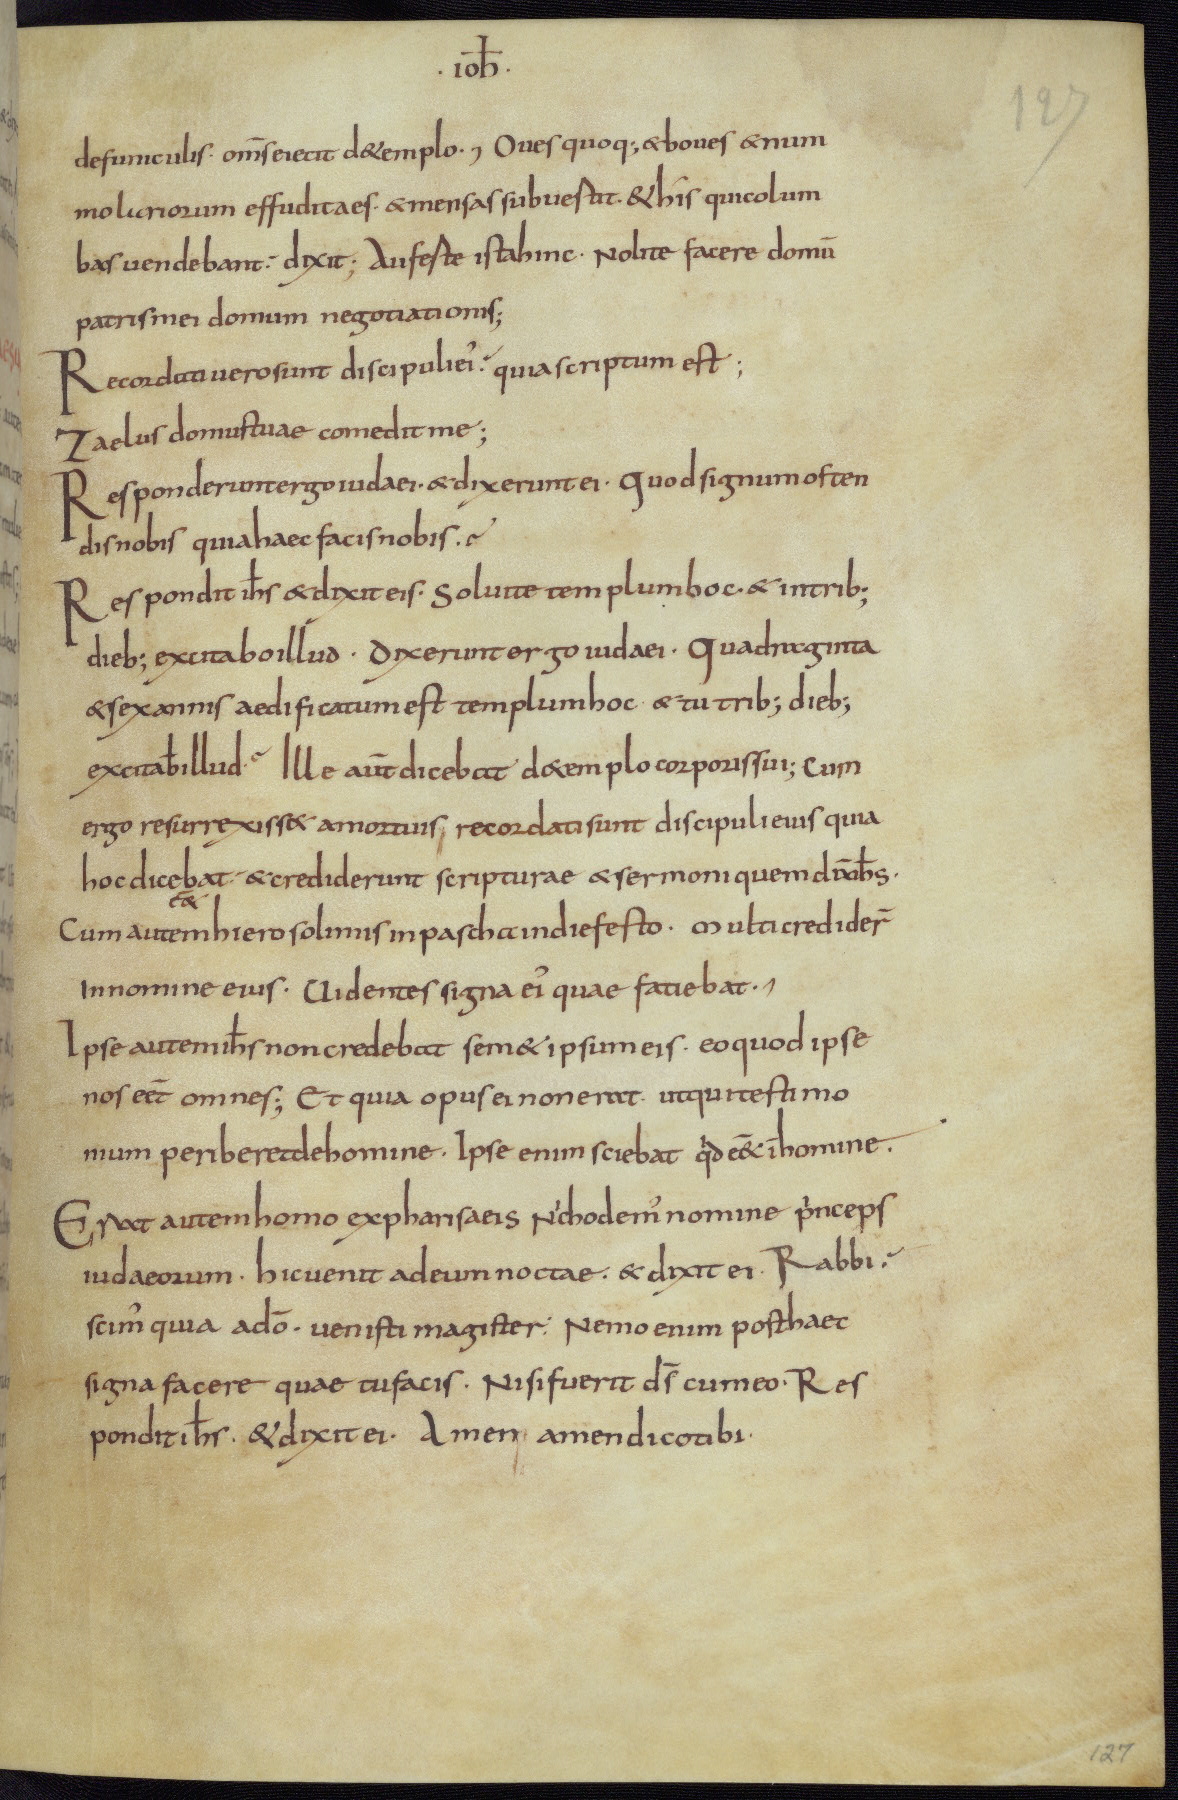 · ioħ ·
127
defuniculis · om̄s eiecit d&emplo · , Oues quoq; & boues & num
mulariorum effudit aes · & mensas subuertit · & his qui colum
bas uendebant · dixit ; Auferte ista hinc · Nolite facere domū
patris mei domum negotiationis ;
Recordati uero sunt discipuli ei' · quia scriptum est ;
Zaelus domus tuae comedit me ;
Responderunt ergo iudaei · & dixerunt ei · Quod signum osten
dis nobis quia haec facis nobis .
Respondit ih̄s & dixit eis · Soluite templum hoc · & in trib;
dieb; excitabo illud · Dixerunt ergo iudaei · Quadraginta
& sex annis aedificatum est templum hoc & tu trib; dieb;
excitab̄ illud · Ille aūt dicebat d&emplo corporis sui ; Cum
ergo resurrexiss& a mortuis recordati sunt discipuli eius quia
hoc dicebat & crediderunt scripturae & sermoni quem dix̄ ih̄s ·
eē&
Cum autem hierosolimis in pascha in die festo · multi credider̄
in nomine eius · Uidentes signa ei' quae faciebat · ,
Ipse autem ih̄s non credebat sem&ipsum eis · eo quod ipse
nosc̄et omnes ; Et quia opus ei non erat ut quis testimo
nium periberet de homine · Ipse enim sciebat qd eē& ī homine ·
Erat autem homo ex pharisaeis Nichodem' nomine princeps
iudaeorum · hic uenit ad eum noctae · & dixit ei · Rabbi ·
scim' quia a dō · uenisti magister · Nemo enim post haec
signa facere quae tu facis · Nisi fuerit ds̄ cum eo · Res
pondit ih̄s · & dixit ei · Amen amen dico tibi ·
127